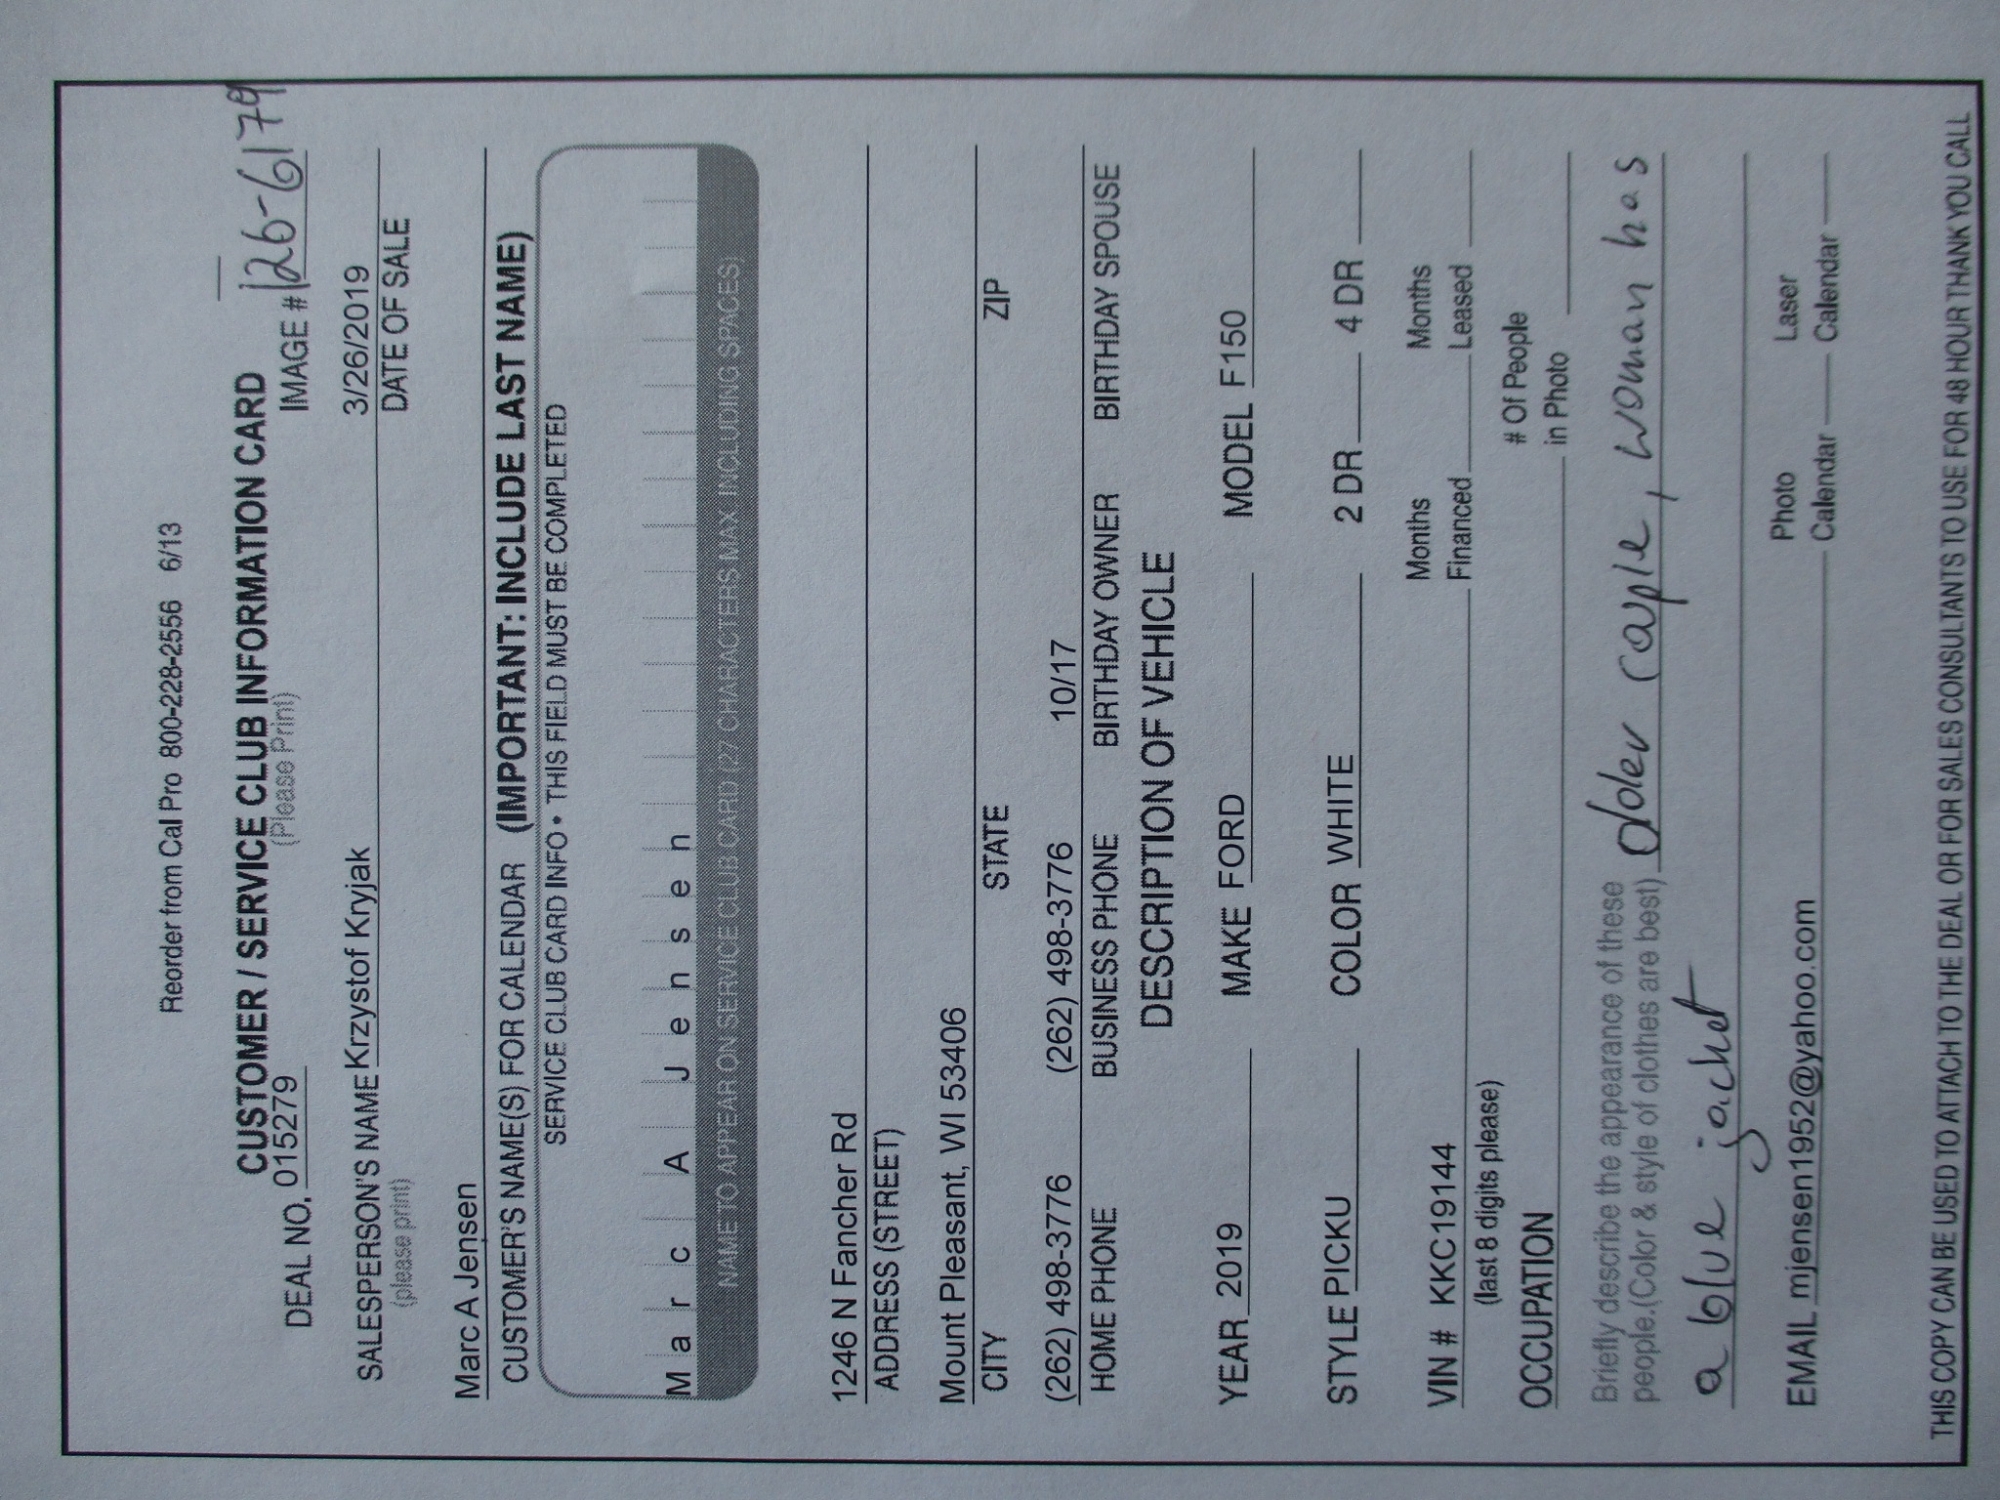 Reorder from Cal Pro 800-228-2556 6/13
CUSTOMER / SERVICE CLUB INFORMATION CARD
(Please Print)
DEAL NO. 015279 IMAGE # 126-6179
SALESPERSON'S NAME Krzystof Kryjak 3/26/2019
(please print) DATE OF SALE
Marc A Jensen
CUSTOMER'S NAME(S) FOR CALENDAR (IMPORTANT: INCLUDE LAST NAME)
SERVICE CLUB CARD INFO • THIS FIELD MUST BE COMPLETED
Marc A Jensen
NAME TO APPEAR ON SERVICE CLUB CARD (27 CHARACTERS MAX INCLUDING SPACES)
1246 N Fancher Rd
ADDRESS (STREET)
Mount Pleasant, WI 53406
CITY STATE ZIP
(262) 498-3776 (262) 498-3776 10/17
HOME PHONE BUSINESS PHONE BIRTHDAY OWNER BIRTHDAY SPOUSE
DESCRIPTION OF VEHICLE
YEAR 2019 MAKE FORD MODEL F150
STYLE PICKU COLOR WHITE 2 DR 4 DR
VIN # KKC19144 Months Financed Months Leased
(last 8 digits please)
OCCUPATION # Of People in Photo
Briefly describe the appearance of these
people.(Color & style of clothes are best) older couple, woman has
a blue jacket
EMAIL mjensen1952@yahoo.com Photo Calendar Laser Calendar
THIS COPY CAN BE USED TO ATTACH TO THE DEAL OR FOR SALES CONSULTANTS TO USE FOR 48 HOUR THANK YOU CALL